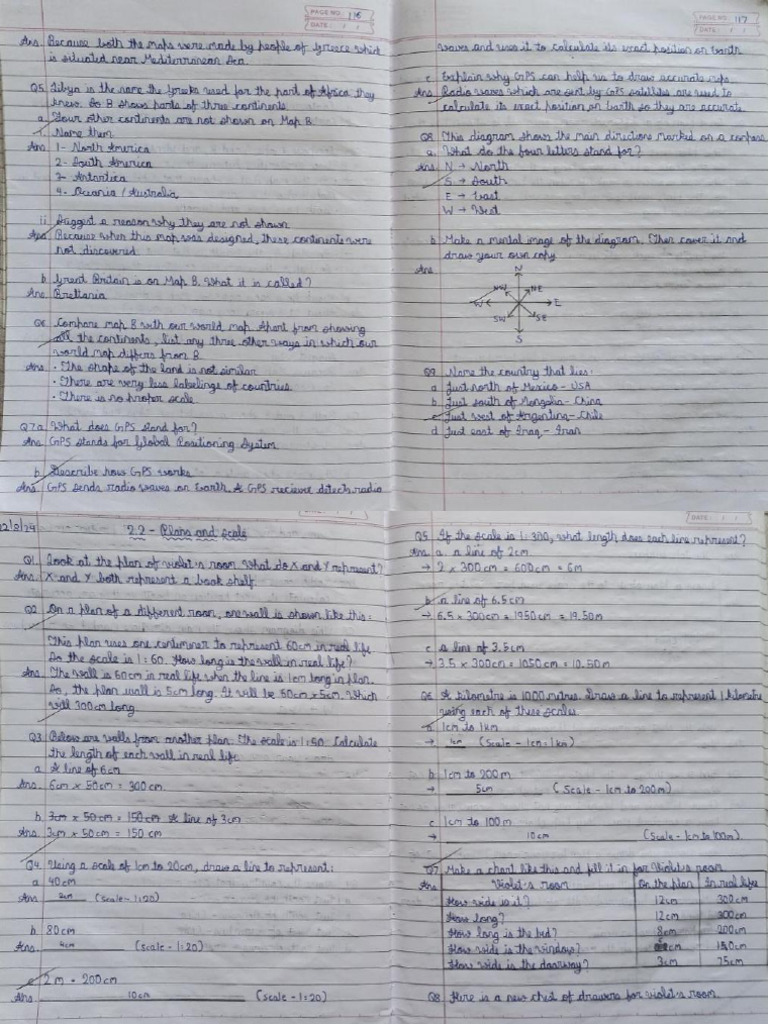 PAGE NO. 116
DATE: / /
Ans. Because both the maps were made by people of Greece which
is situated near Mediterranean Sea.
Q5. Libya is the name the Greeks used for the part of Africa they
knew. So B shows parts of three continents.
a Four other continents are not shown on Map B.
i. Name them
Ans 1- North America
2- South America
3- Antartica
4- Oceania / Australia
ii Suggest a reason why they are not shown
Ans Because when this map was designed, these continents were
not discovered
b. Great Britain is on Map B. What it is called?
Ans. Brettania
Q6 Compare map B with our world map. Apart from showing
all the continents, list any three other ways in which our
world map differs from B.
Ans · The shape of the land is not similar
· There are very less labelings of countries.
· There is no proper scale
Q7a. What does GPS stand for?
Ans. GPS stands for Global Positioning System
b. Describe how GPS works
Ans. GPS sends radio waves on Earth. A GPS reciever ditech radio
PAGE NO. 117
DATE: / /
waves and uses it to calculate its exact position on Earth
c Explain why GPS can help us to draw accurate
Ans Radio waves which are sent by GPS satellites are used to
calculate its exact position on Earth so they are accurate
Q8 This diagram shows the main directions marked on a compass
a. What do the four letters stand for?
Ans N → North
S → South
E → East
W → West
b Make a mental image of the diagram. Then cover it and
draw your own copy
Ans
N
NW NE
W E
SW SE
S
Q9 Name the country that lies:
a Just north of Mexico - USA
b Just south of Mongolia - China
c Just west of Argentina - Chile
d Just east of Iraq - Iran
12/8/24
2.2 - Plans and scale
Q1. Look at the plan of violet's room. What do X and Y represent?
Ans. X and Y both represent a book shelf.
Q2 On a plan of a different room, one wall is shown like this:
This plan uses one centimener to represent 60cm in real life
So the scale is 1:60. How long is the wall in real life?
Ans. The wall is 60cm in real life when the line is 1cm long in plan.
So, the plan wall is 5cm long. It will be 60cm x 5cm. Which
will 300cm long.
Q3 Below are walls from another plan. The scale is 1:50. Calculate
the length of each wall in real life
a A line of 6cm
Ans. 6cm x 50cm = 300cm.
b. 3cm x 50cm = 150cm A line of 3cm
Ans 3cm x 50cm = 150cm
Q4 Using a scale of 1cm to 20cm, draw a line to represent:
a 40cm
Ans 2cm (scale - 1:20)
b. 80cm
Ans. 4cm (scale - 1:20)
c 2m = 200cm
Ans 10cm (scale - 1:20)
DATE: / /
Q5. If the scale is 1:300, what length does each line represent?
Ans a. a line of 2cm
→ 2 x 300cm = 600cm = 6m
b a line of 6.5cm
→ 6.5 x 300cm = 1950cm = 19.50m
c a line of 3.5cm
→ 3.5 x 300cm = 1050cm = 10.50m
Q6 A kilometre is 1000 metres. Draw a line to represent 1 kilometre
using each of these scales
a 1cm to 1km
→ 1cm (Scale - 1cm : 1km)
b 1cm to 200m
→ 5cm (Scale - 1cm to 200m)
c 1cm to 100m
→ 10cm (Scale - 1cm to 100m)
Q7 Make a chart like this and fill it in for Violet's room
Ans Violet's room On the plan In real life
How wide is it? 12cm 300cm
How long? 12cm 300cm
How long is the bed? 8cm 200cm
How wide is the window? 6cm 150cm
How wide is the doorway? 3cm 75cm
Q8 Here is a new chest of drawers for violet's room.